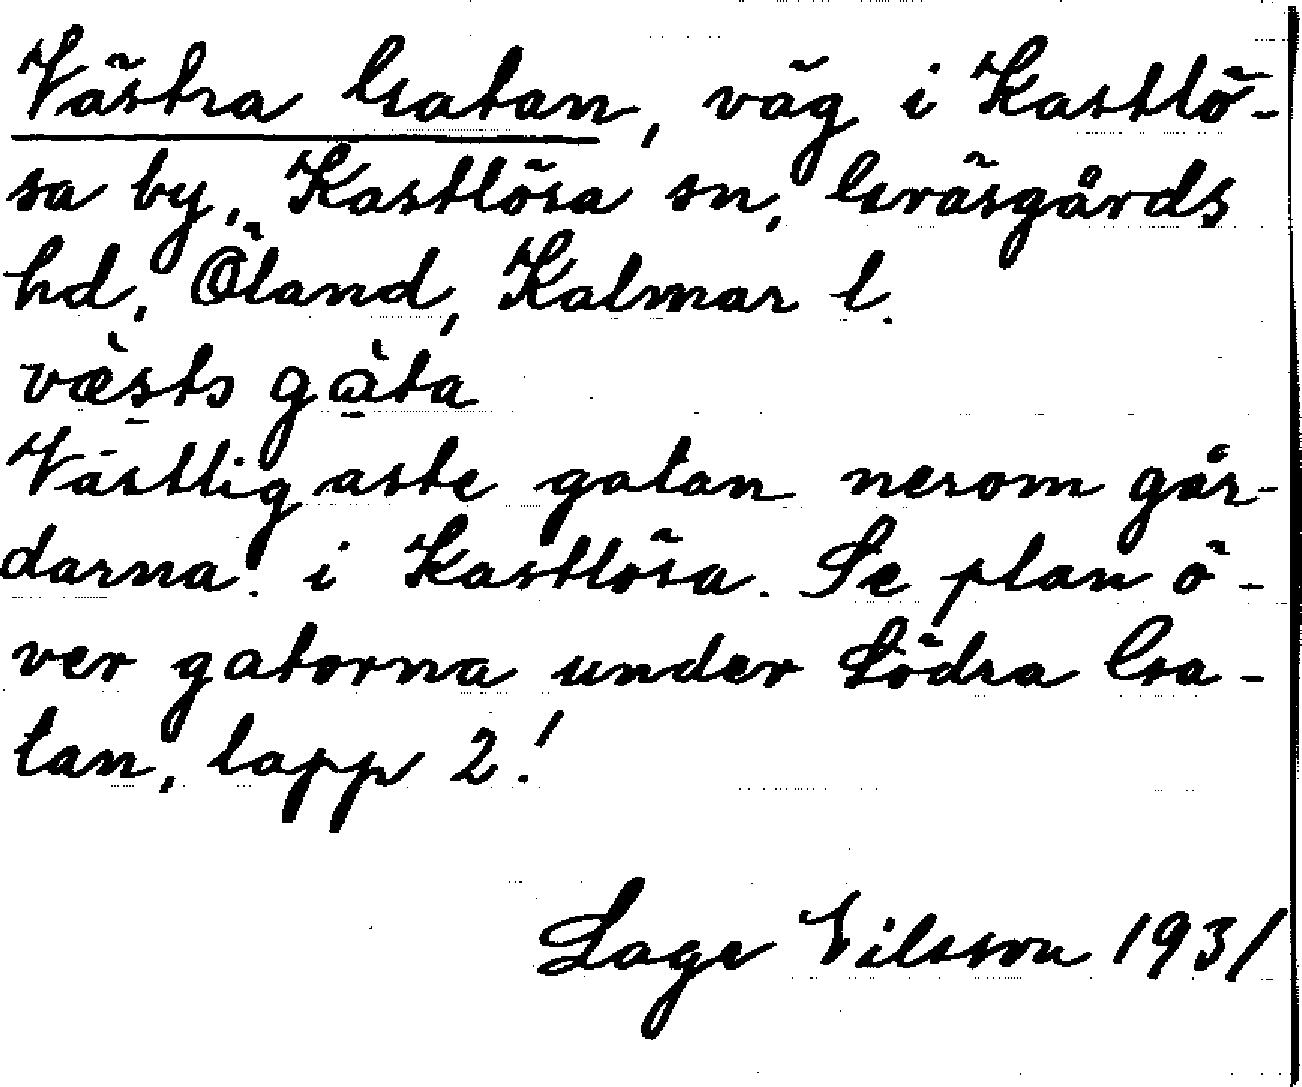 Västra Gatan, väg i Kastlö-
sa by, Kastlösa sn, Gräsgårds
hd, Öland, Kalmar l.
væ̀sts gɑ̀ta
Västligaste gatan nerom går-
darna i Kastlösa. Se plan ö-
ver gatorna under Södra Ga-
tan, lapp 2!
Lage Nilsson 1931